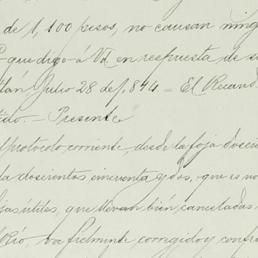 de $1,100 pesos, no causan ning
que digo á Vd en respuesta de s
tlán Julio 28 de 1,894. — El Recaud
tido. — Presente
protocolo corriente, desde la foja doscie
a doscientos cincuenta y dos, que es no
jas útiles, que llevan bien canceladas
Río, va fielmente corregido y conf